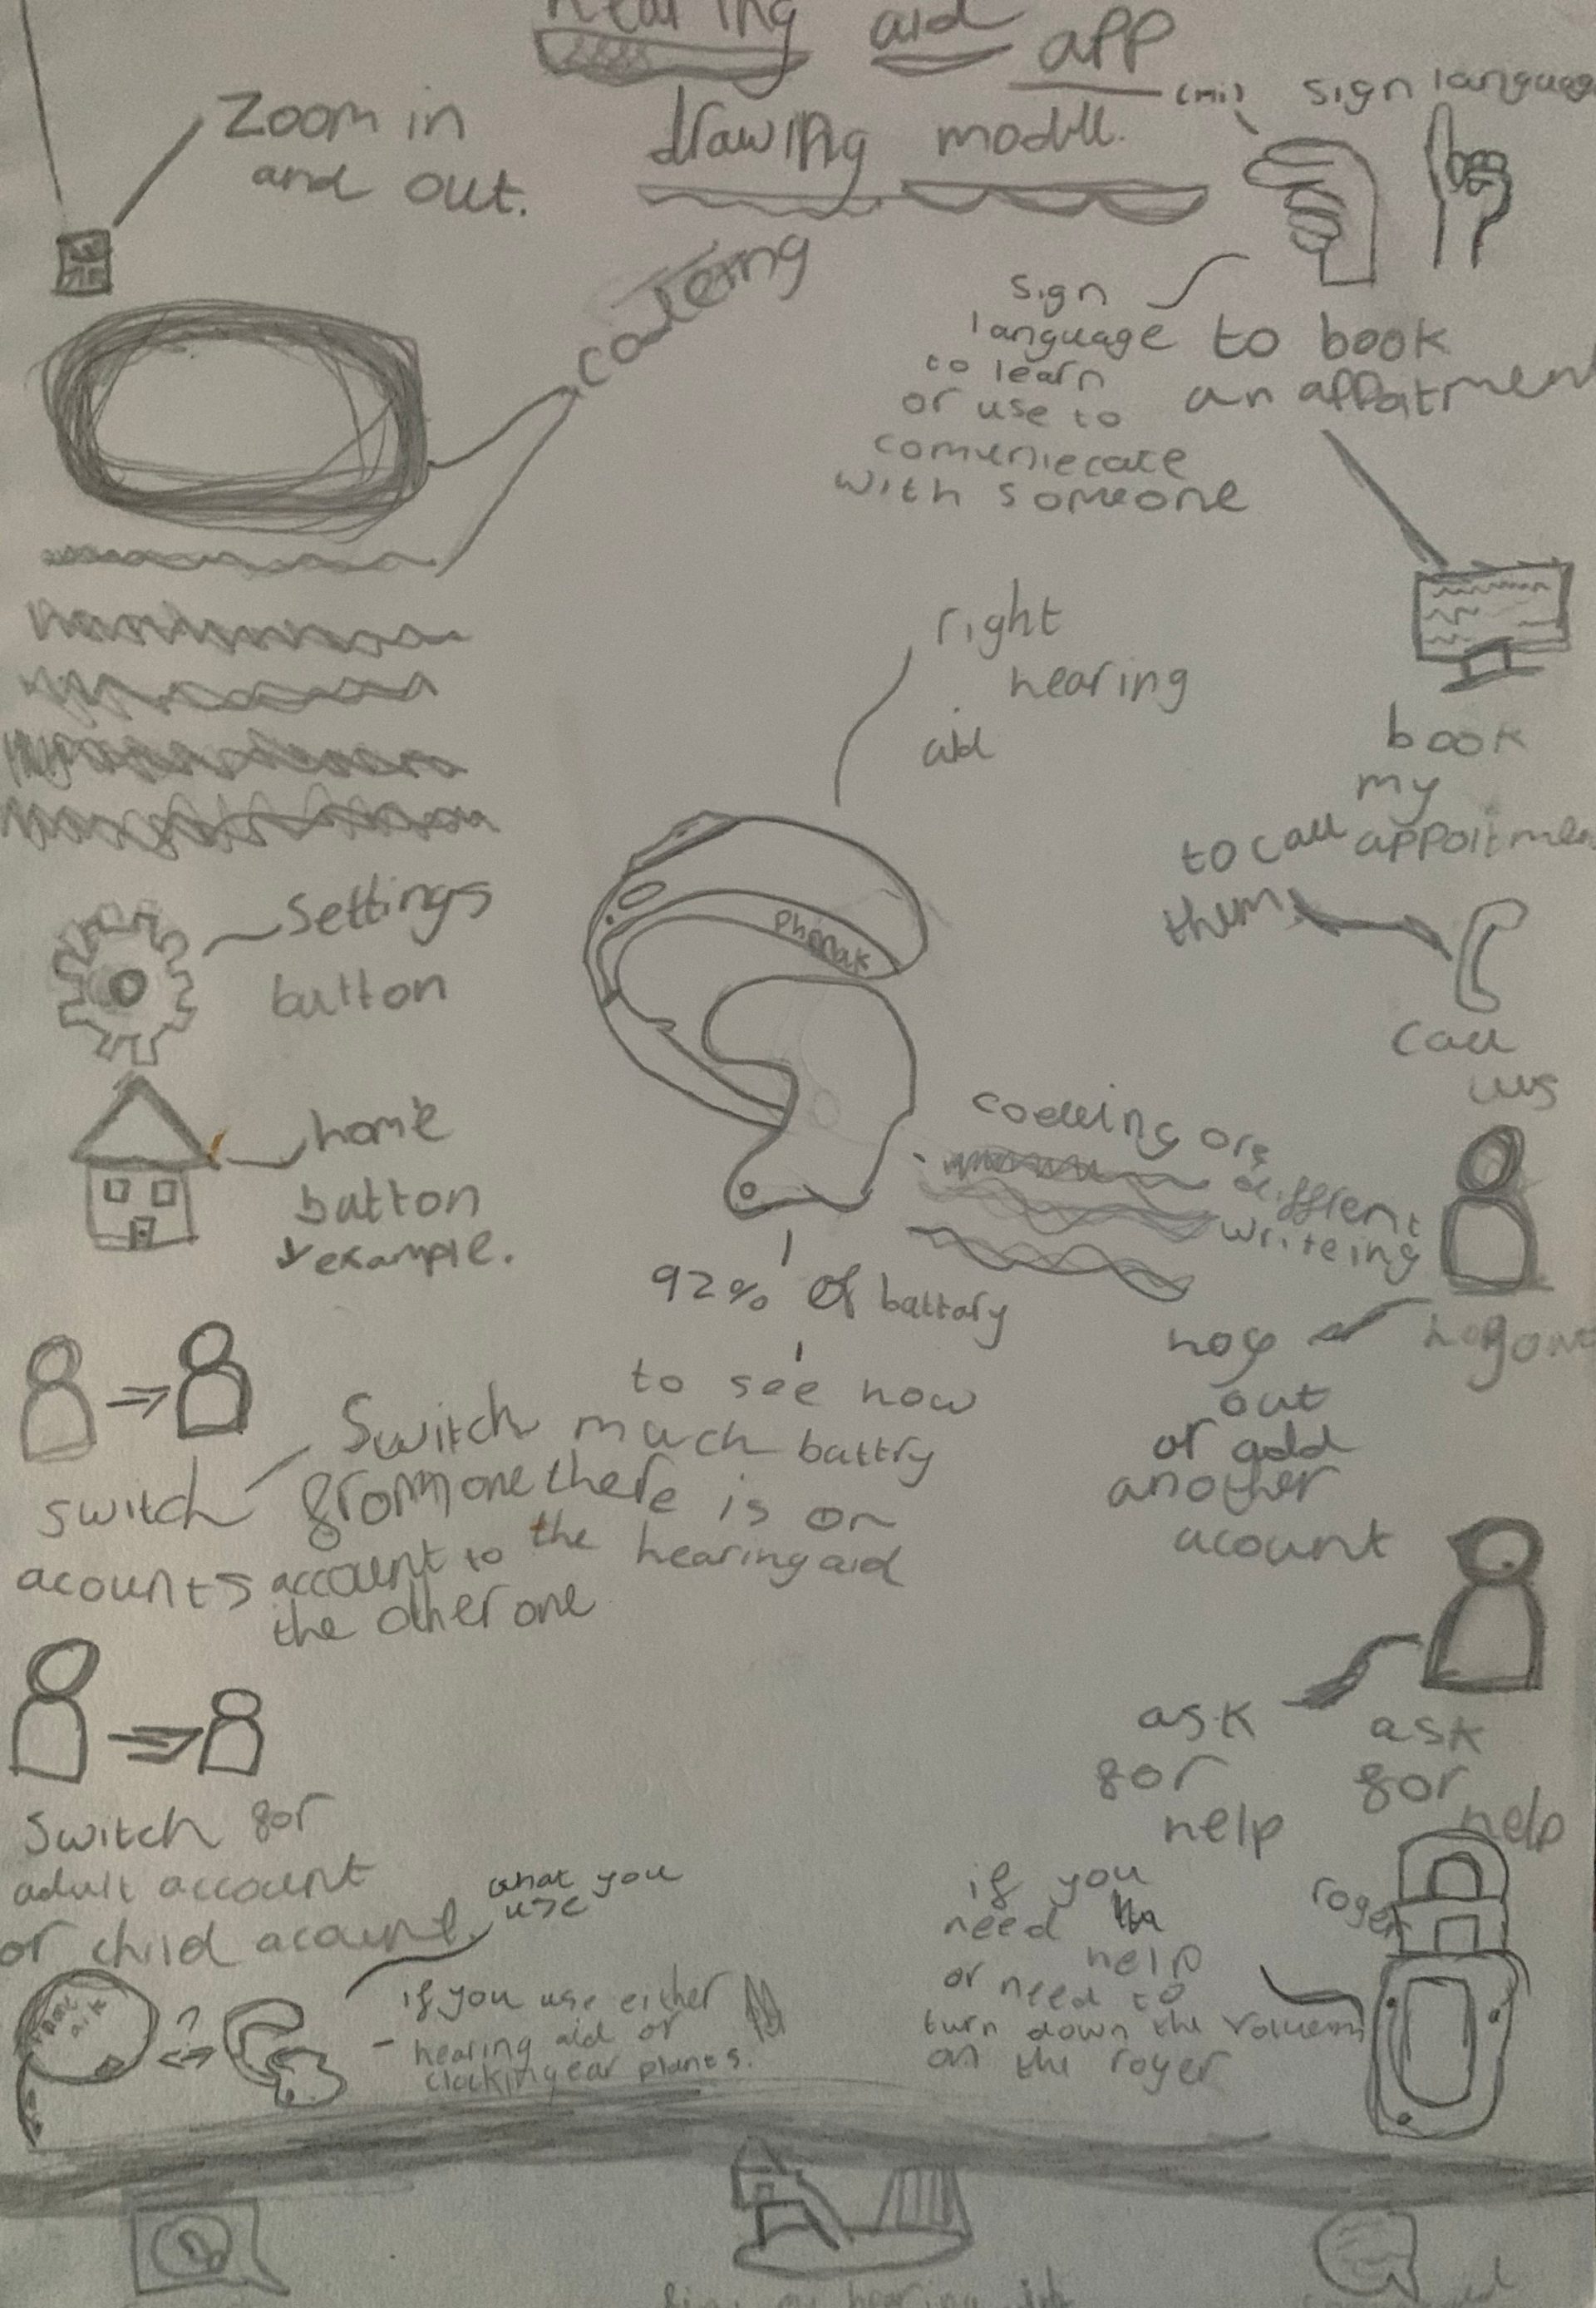 hearing aid app
drawing modull.
(Mi)
sign language
Zoom in
and out.
sign
language
to learn
or use to
comuniecate
with someone
to book
an appoitment
right
hearing
aid
book
my
appoitment
to call
them
Phonak
Settings
button
call
us
home
button
example.
codeing ore
diffrent
writeing
92% of battary
to see how
much battry
there is on
the hearing aid
log
out
or add
another
acount
switch
acounts
Switch
from one
account to
the other one
ask
for
help
ask
for
help
Switch for
adult account
or child acount.
what you
use
if you use either
hearing aid or
clocking ear plants.
if you
need
help
or need to
turn down the
on the roger
roger